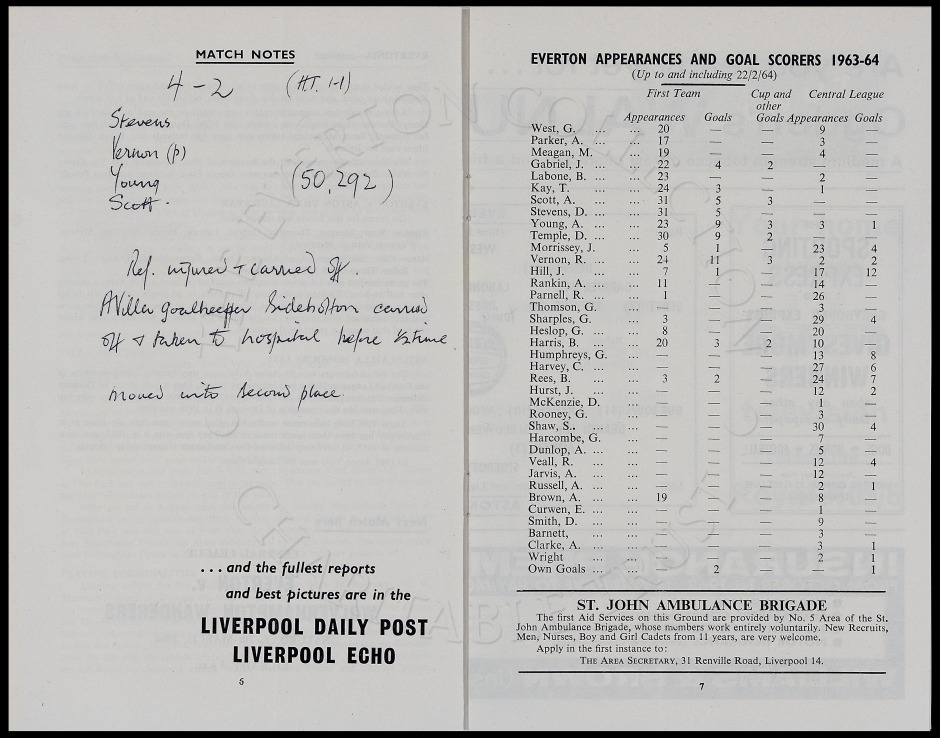 MATCH NOTES
4-2 (H.T. 1-1)
Stevens
Vernon (p)
Young (50,292)
Scott.
Ref. injured + carried off.
A Villa goalkeeper Sidebottom carried
off & taken to hospital before ½ time
moved into second place.
... and the fullest reports
and best pictures are in the
LIVERPOOL DAILY POST
LIVERPOOL ECHO
5
EVERTON APPEARANCES AND GOAL SCORERS 1963-64
(Up to and including 22/2/64)
First Team Cup and other Goals Central League
Appearances Goals Appearances Goals
West, G. ... ... 20 — — 9 —
Parker, A. ... ... 17 — — 3 —
Meagan, M. ... 19 — — 4 —
Gabriel, J. ... ... 22 4 2 — —
Labone, B. ... ... 23 — — 2 —
Kay, T. ... ... 24 3 — 1 —
Scott, A. ... ... 31 5 3 — —
Stevens, D. ... ... 31 5 — — —
Young, A. ... ... 23 9 3 3 1
Temple, D. ... ... 30 9 2 — —
Morrissey, J. ... 5 1 — 23 4
Vernon, R. ... ... 24 11 3 2 2
Hill, J. ... ... 7 1 — 17 12
Rankin, A. ... ... 11 — — 14 —
Parnell, R. ... ... 1 — — 26 —
Thomson, G. ... — — — 3 —
Sharples, G. ... 3 — — 29 4
Heslop, G. ... ... 8 — — 20 —
Harris, B. ... ... 20 3 2 10 —
Humphreys, G. ... — — — 13 8
Harvey, C. ... ... — — — 27 6
Rees, B. ... ... 3 2 — 24 7
Hurst, J. ... ... — — — 12 2
McKenzie, D. ... — — — 1 —
Rooney, G. ... — — — 3 —
Shaw, S.. ... ... — — — 30 4
Harcombe, G. ... — — — 7 —
Dunlop, A. ... ... — — — 5 —
Veall, R. ... ... — — — 12 4
Jarvis, A. ... ... — — — 12 —
Russell, A. ... ... — — — 2 1
Brown, A. ... ... 19 — — 8 —
Curwen, E. ... ... — — — 1 —
Smith, D. ... ... — — — 9 —
Barnett, ... ... — — — 3 —
Clarke, A. ... ... — — — 3 1
Wright ... ... — — — 2 1
Own Goals ... ... 2 — — 1
ST. JOHN AMBULANCE BRIGADE
The first Aid Services on this Ground are provided by No. 5 Area of the St.
John Ambulance Brigade, whose members work entirely voluntarily. New Recruits,
Men, Nurses, Boy and Girl Cadets from 11 years, are very welcome.
Apply in the first instance to:
THE AREA SECRETARY, 31 Renville Road, Liverpool 14.
7